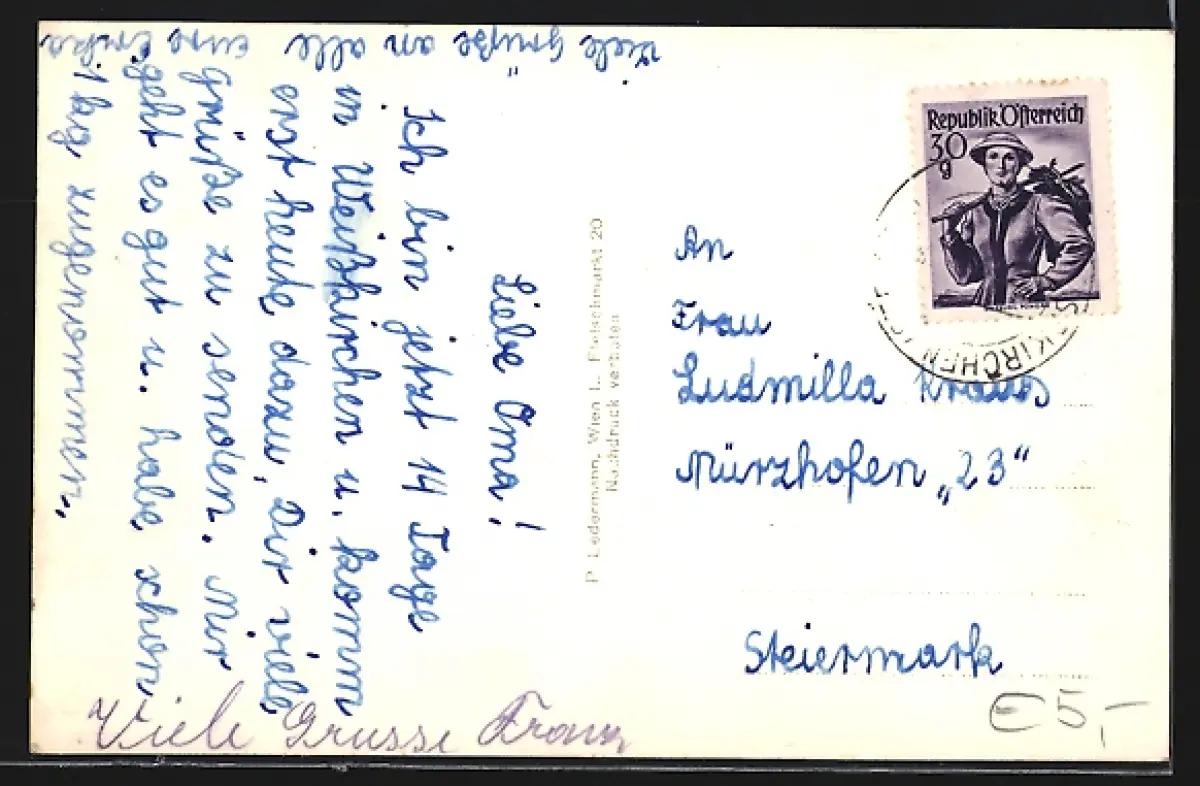 Liebe Oma!
Ich bin jetzt 14 Tage
in Weißkirchen u. komm
erst heute dazu, Dir viele
grüße zu senden. Mir
geht es gut u. habe schon
1 kg zugenommen.
Viele Grüße an alle eure Erika
Viele Grusse Franz
P. Ledermann, Wien I., Fleischmarkt 20
Nachdruck verboten
Republik Österreich
30 g
KIRCHEN
An
Frau
Ludmilla Kraus
Mürzhofen „23“
Steiermark
€5,-